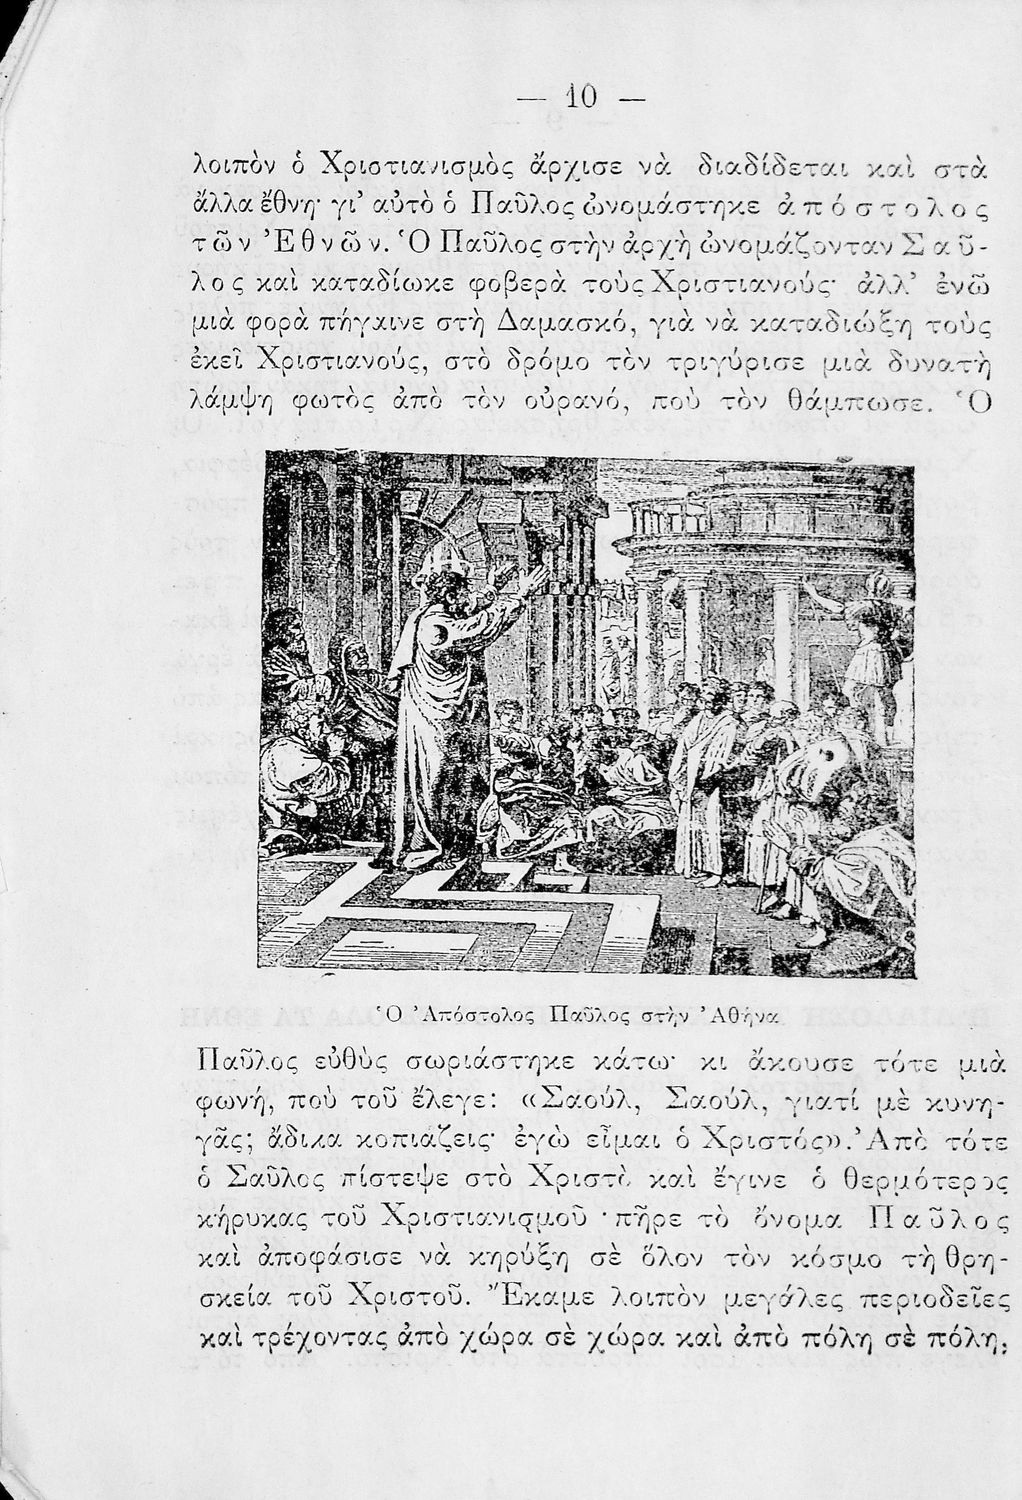 — 10 —
λοιπὸν ὁ Χριστιανισμὸς ἄρχισε νὰ διαδίδεται καὶ στὰ
ἄλλα ἔθνη· γι’ αὐτὸ ὁ Παῦλος ὠνομάστηκε ἀπόστολος
τῶν Ἐθνῶν. Ὁ Παῦλος στὴν ἀρχὴ ὠνομάζονταν Σαῦ-
λος καὶ καταδίωκε φοβερὰ τοὺς Χριστιανούς· ἀλλ’ ἐνῶ
μιὰ φορὰ πήγαινε στὴ Δαμασκό, γιὰ νὰ καταδιώξη τοὺς
ἐκεῖ Χριστιανούς, στὸ δρόμο τὸν τριγύρισε μιὰ δυνατὴ
λάμψη φωτὸς ἀπὸ τὸν οὐρανό, ποὺ τὸν θάμπωσε. Ὁ
Ὁ Ἀπόστολος Παῦλος στὴν Ἀθήνα
Παῦλος εὐθὺς σωριάστηκε κάτω· κι ἄκουσε τότε μιὰ
φωνή, ποὺ τοῦ ἔλεγε: «Σαούλ, Σαούλ, γιατί μὲ κυνη-
γᾶς; ἄδικα κοπιάζεις· ἐγὼ εἶμαι ὁ Χριστός». Ἀπὸ τότε
ὁ Σαῦλος πίστεψε στὸ Χριστὸ καὶ ἔγινε ὁ θερμότερος
κήρυκας τοῦ Χριστιανισμοῦ· πῆρε τὸ ὄνομα Παῦλος
καὶ ἀποφάσισε νὰ κηρύξη σὲ ὅλον τὸν κόσμο τὴ θρη-
σκεία τοῦ Χριστοῦ. Ἔκαμε λοιπὸν μεγάλες περιοδεῖες
καὶ τρέχοντας ἀπὸ χώρα σὲ χώρα καὶ ἀπὸ πόλη σὲ πόλη,